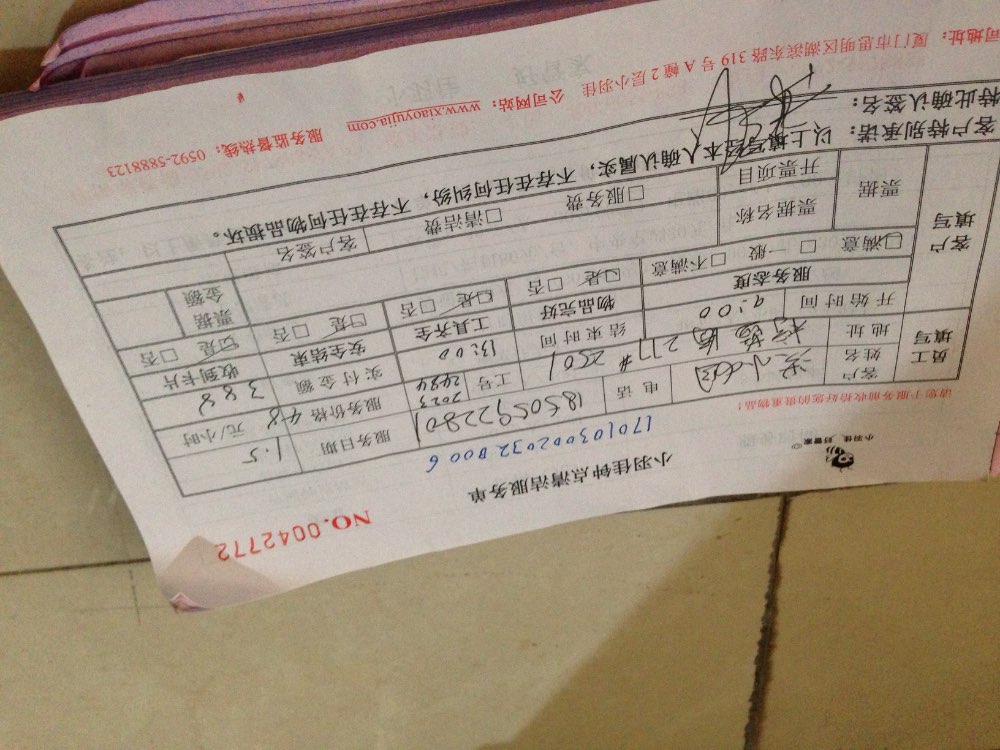 NO.0042772
小羽佳 好管家
小羽佳钟点清洁服务单
170103002032B006
请您于服务前收拾好您的贵重物品!
员工填写
客户姓名
电话 18505922801
服务日期 1.5
地址 277# 2501
工号 2023 2484
服务价格 48 元/小时
开始时间 9:00
结束时间 13:00
实付金额 388
客户填写
服务态度
物品完好
工具齐全
安全结束
收到卡片
□满意 □一般 □不满意
□是 □否
□是 □否
□是 □否
□是 □否
票据
票据名称
□服务费 □清洁费
客户签名
票据金额
开票项目
客户特别承诺: 以上填写经本人确认属实,不存在任何纠纷,不存在任何物品损坏。
特此确认签名:
司地址: 厦门市思明区湖滨东路 319 号 A 幢 2 层小羽佳 公司网站: www.xiaoyujia.com 服务监督热线: 0592-5888123